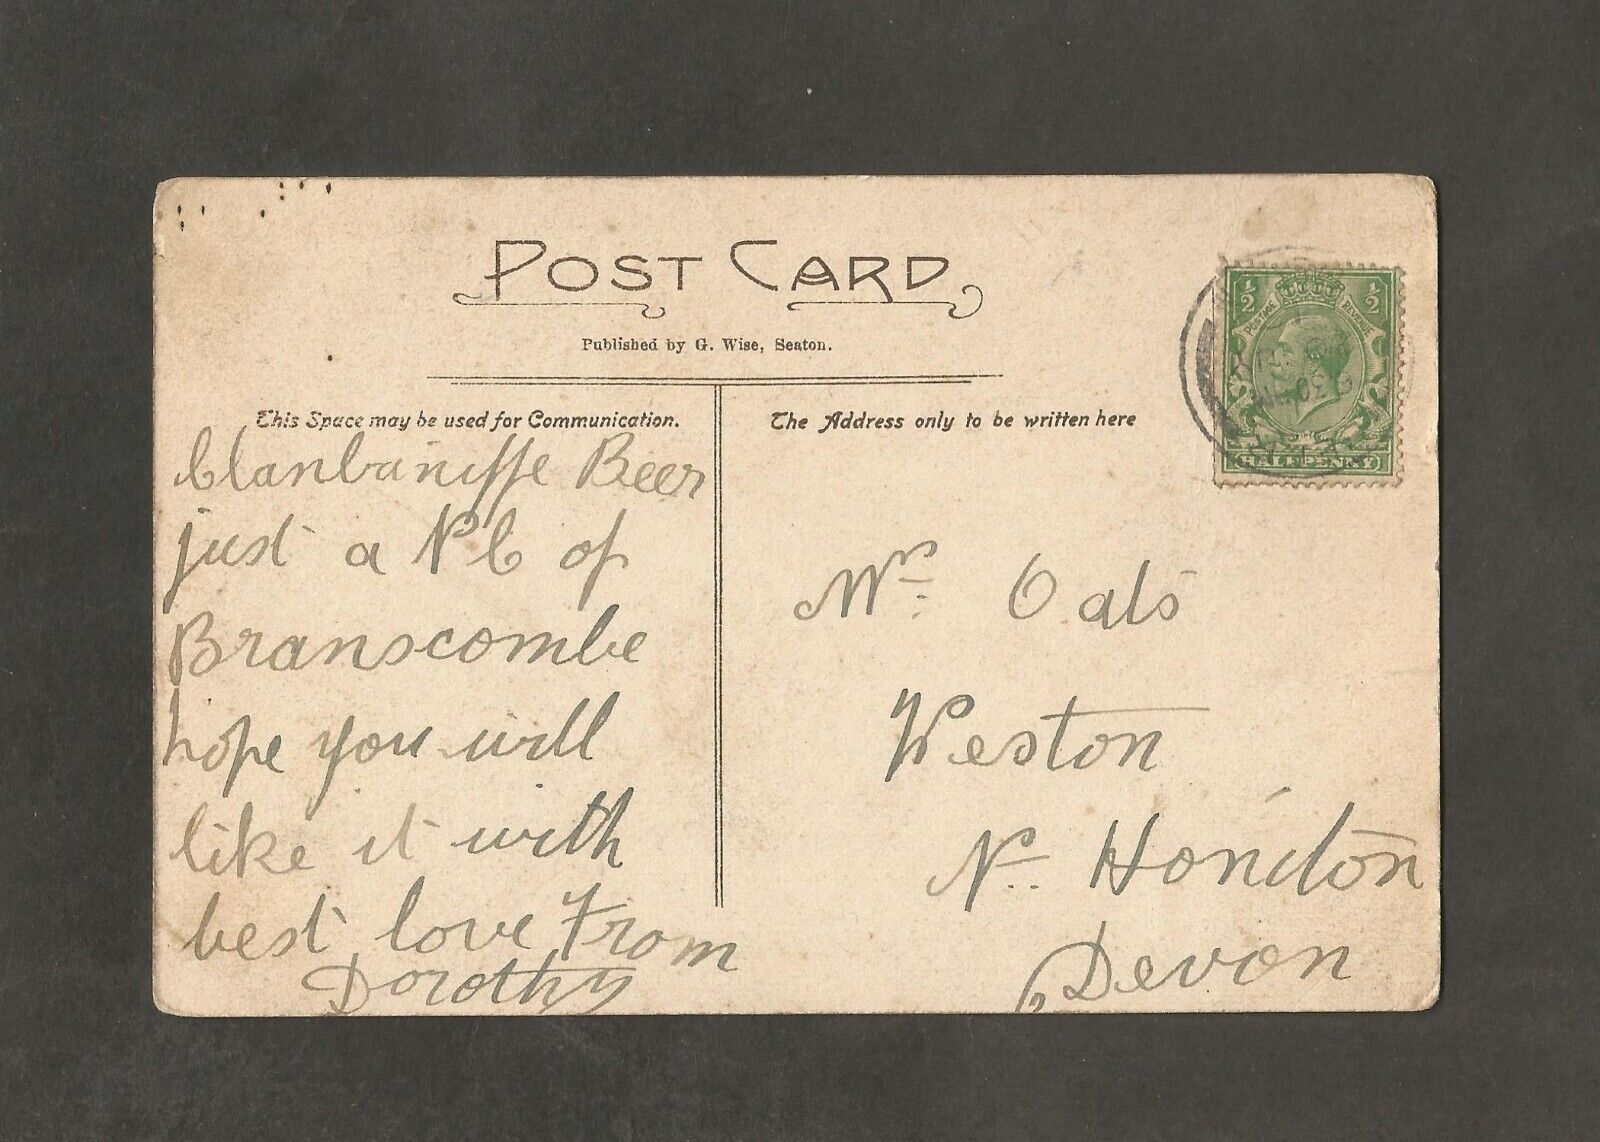 POST CARD
Published by G. Wise, Seaton.
This Space may be used for Communication.
Beer
just a PC of
Branscombe
hope you will
like it with
best love From
Dorothy
The Address only to be written here
½ POSTAGE REVENUE ½
HALFPENNY
Mrs Oats
Weston
Nr. Honiton
Devon